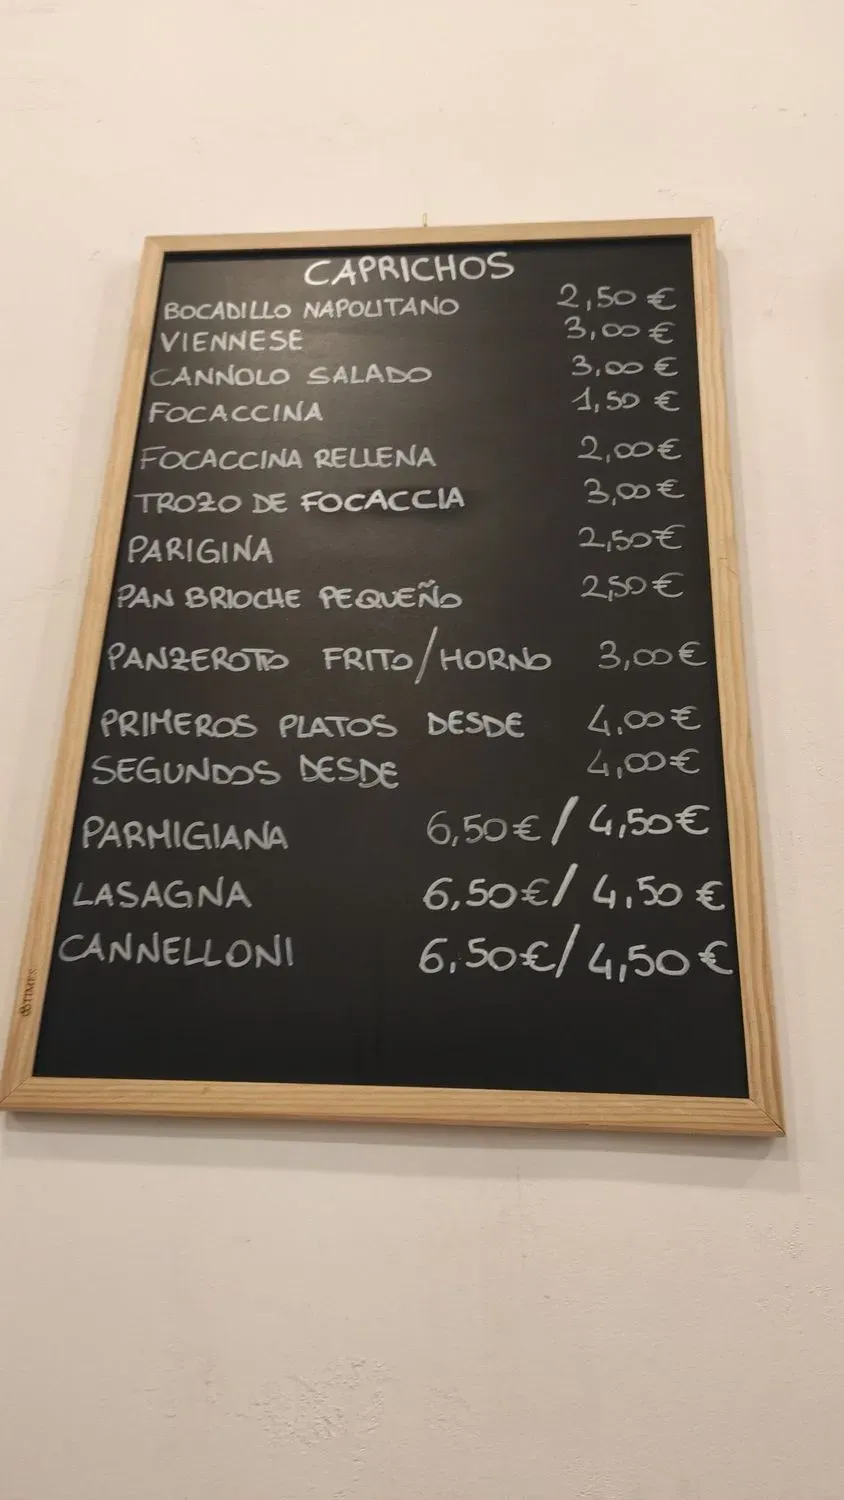 CAPRICHOS
BOCADILLO NAPOLITANO 2,50 €
VIENNESE 3,00 €
CANNOLO SALADO 3,00 €
FOCACCINA 1,50 €
FOCACCINA RELLENA 2,00 €
TROZO DE FOCACCIA 3,00 €
PARIGINA 2,50 €
PAN BRIOCHE PEQUEÑO 2,50 €
PANZEROTTO FRITO/HORNO 3,00 €
PRIMEROS PLATOS DESDE 4,00 €
SEGUNDOS DESDE 4,00 €
PARMIGIANA 6,50 € / 4,50 €
LASAGNA 6,50 € / 4,50 €
CANNELLONI 6,50 € / 4,50 €